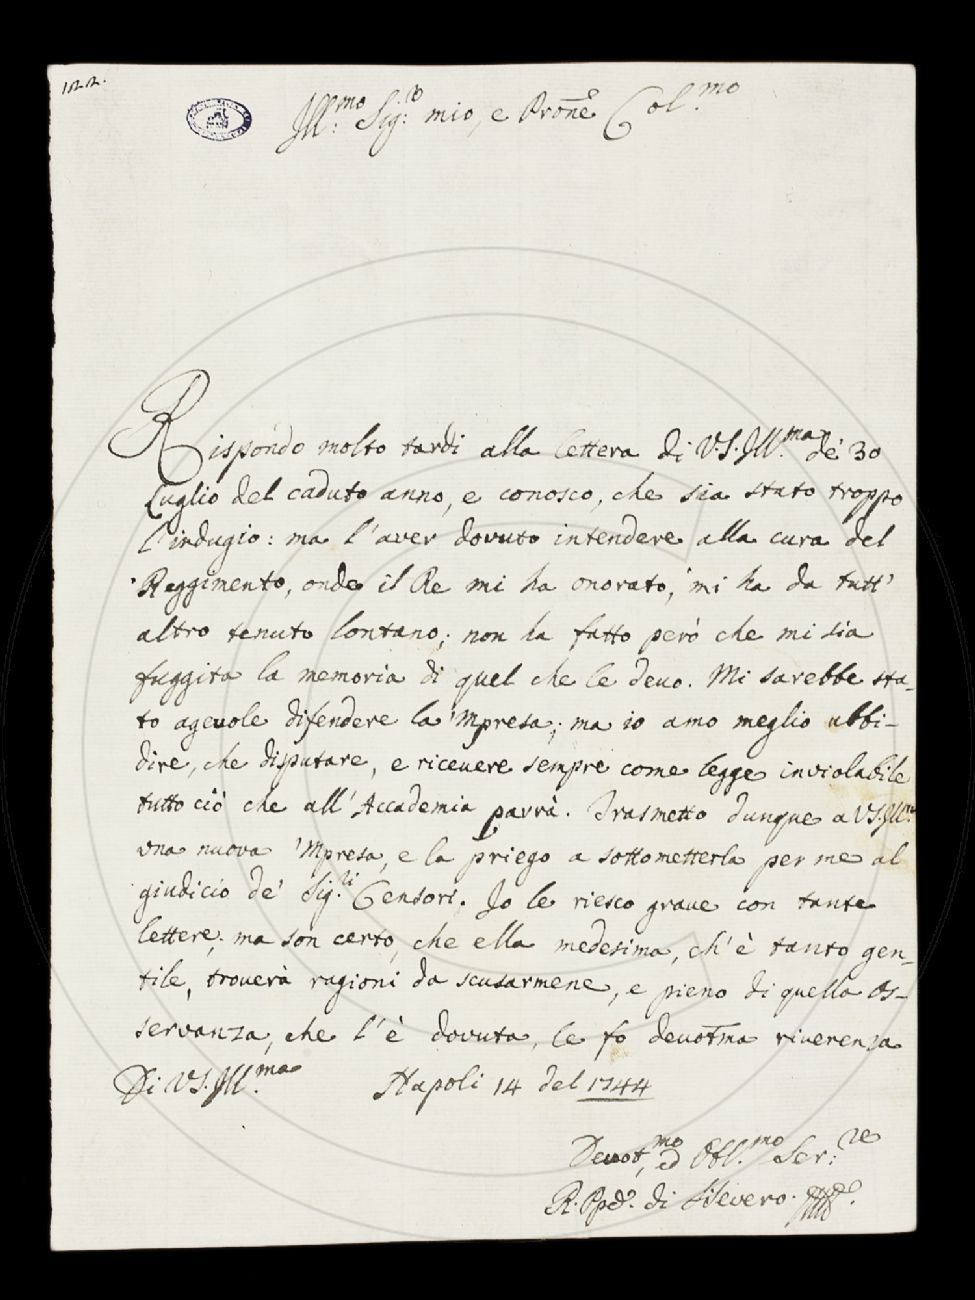 122.
Ill:mo Sig:re mio, e Prone Col.mo
Rispondo molto tardi alla lettera di V.S.Ill.ma de' 30
Luglio del caduto anno, e conosco, che sia stato troppo
l'indugio: ma l'aver dovuto intendere alla cura del
Reggimento, onde il Re mi ha onorato, mi ha da tutt'
altro tenuto lontano; non ha fatto però che mi sia
fuggita la memoria di quel che le devo. Mi sarebbe sta-
to agevole difendere la 'Mpresa; ma io amo meglio ubbi-
dire, che disputare, e ricevere sempre come legge inviolabile
tutto ciò che all'Accademia parrà. Trasmetto dunque a VS.Ill.ma
una nuova 'Mpresa, e la priego a sottometterla per me al
giudicio de' Sig.ri Censori. Io le riesco grave con tante
lettere; ma son certo, che ella medesima, ch'è tanto gen-
tile, troverà ragioni da scusarmene, e pieno di quella Os-
servanza, che l'è dovuta, le fo devotma riverenza
Di VS.Ill.ma Napoli 14 del 1744
Devot,mo ed Obl.mo Ser:re
R. Ppe. di Sisevero.